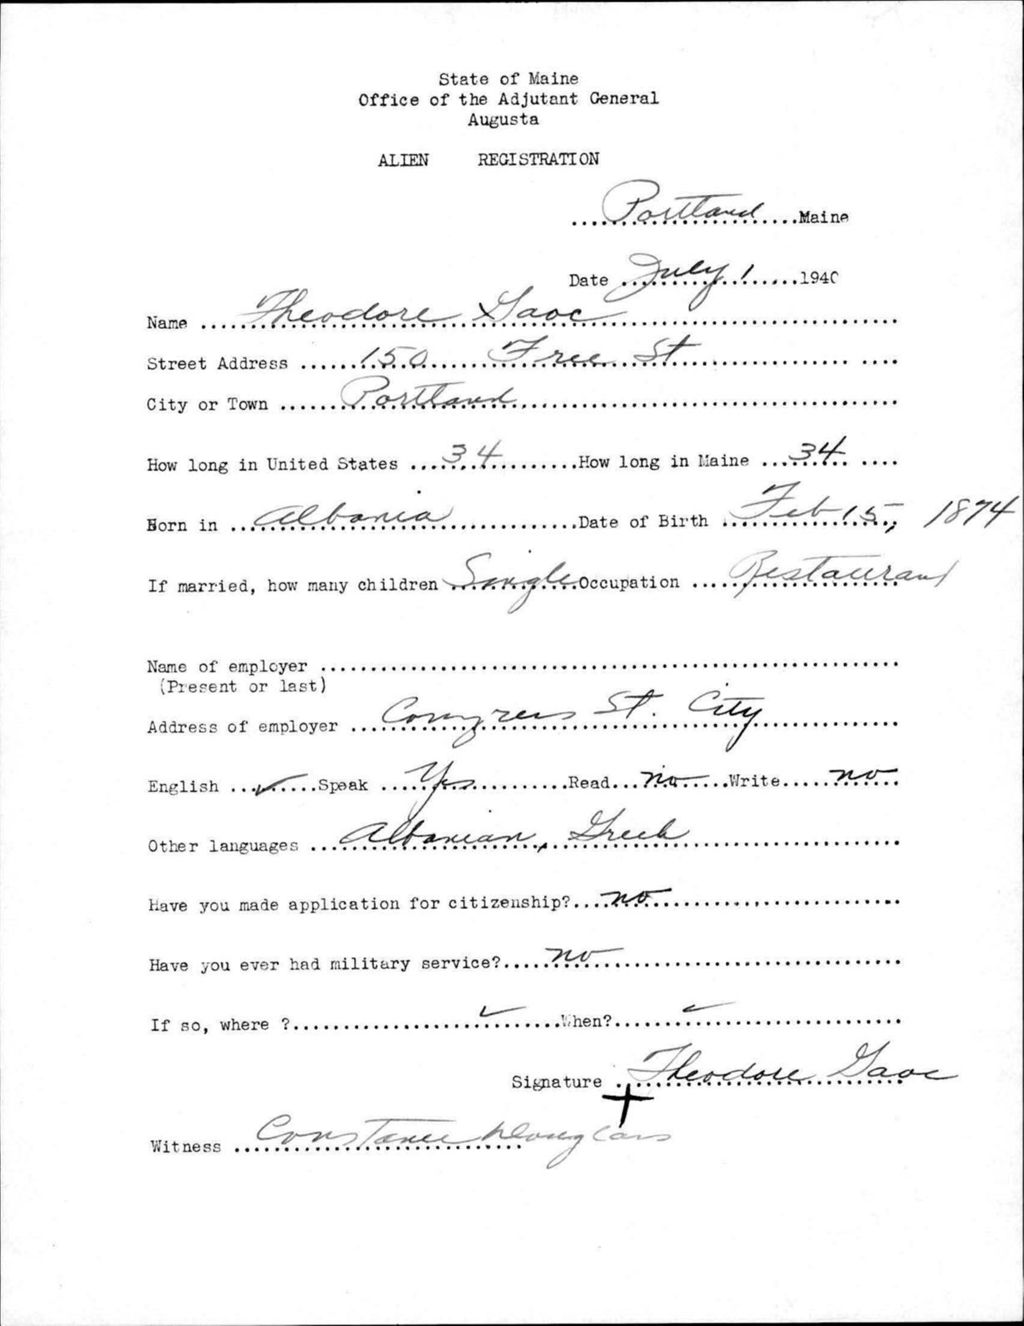 State of Maine
Office of the Adjutant General
Augusta
ALIEN REGISTRATION
Portland Maine
Date July 1 1940
Name Theodore Gaoc
Street Address 150 Free St
City or Town Portland
How long in United States 34 How long in Maine 34
Born in Albania Date of Birth Feb 15, 1874
If married, how many children Single Occupation Restaurant
Name of employer
(Present or last)
Address of employer Congress St. City
English ✓ Speak Yes Read no Write no
Other languages Albanian, Greek
Have you made application for citizenship? no
Have you ever had military service? no
If so, where ? ✓ When? ✓
Signature Theodore Gaoc
Witness Constance Douglass